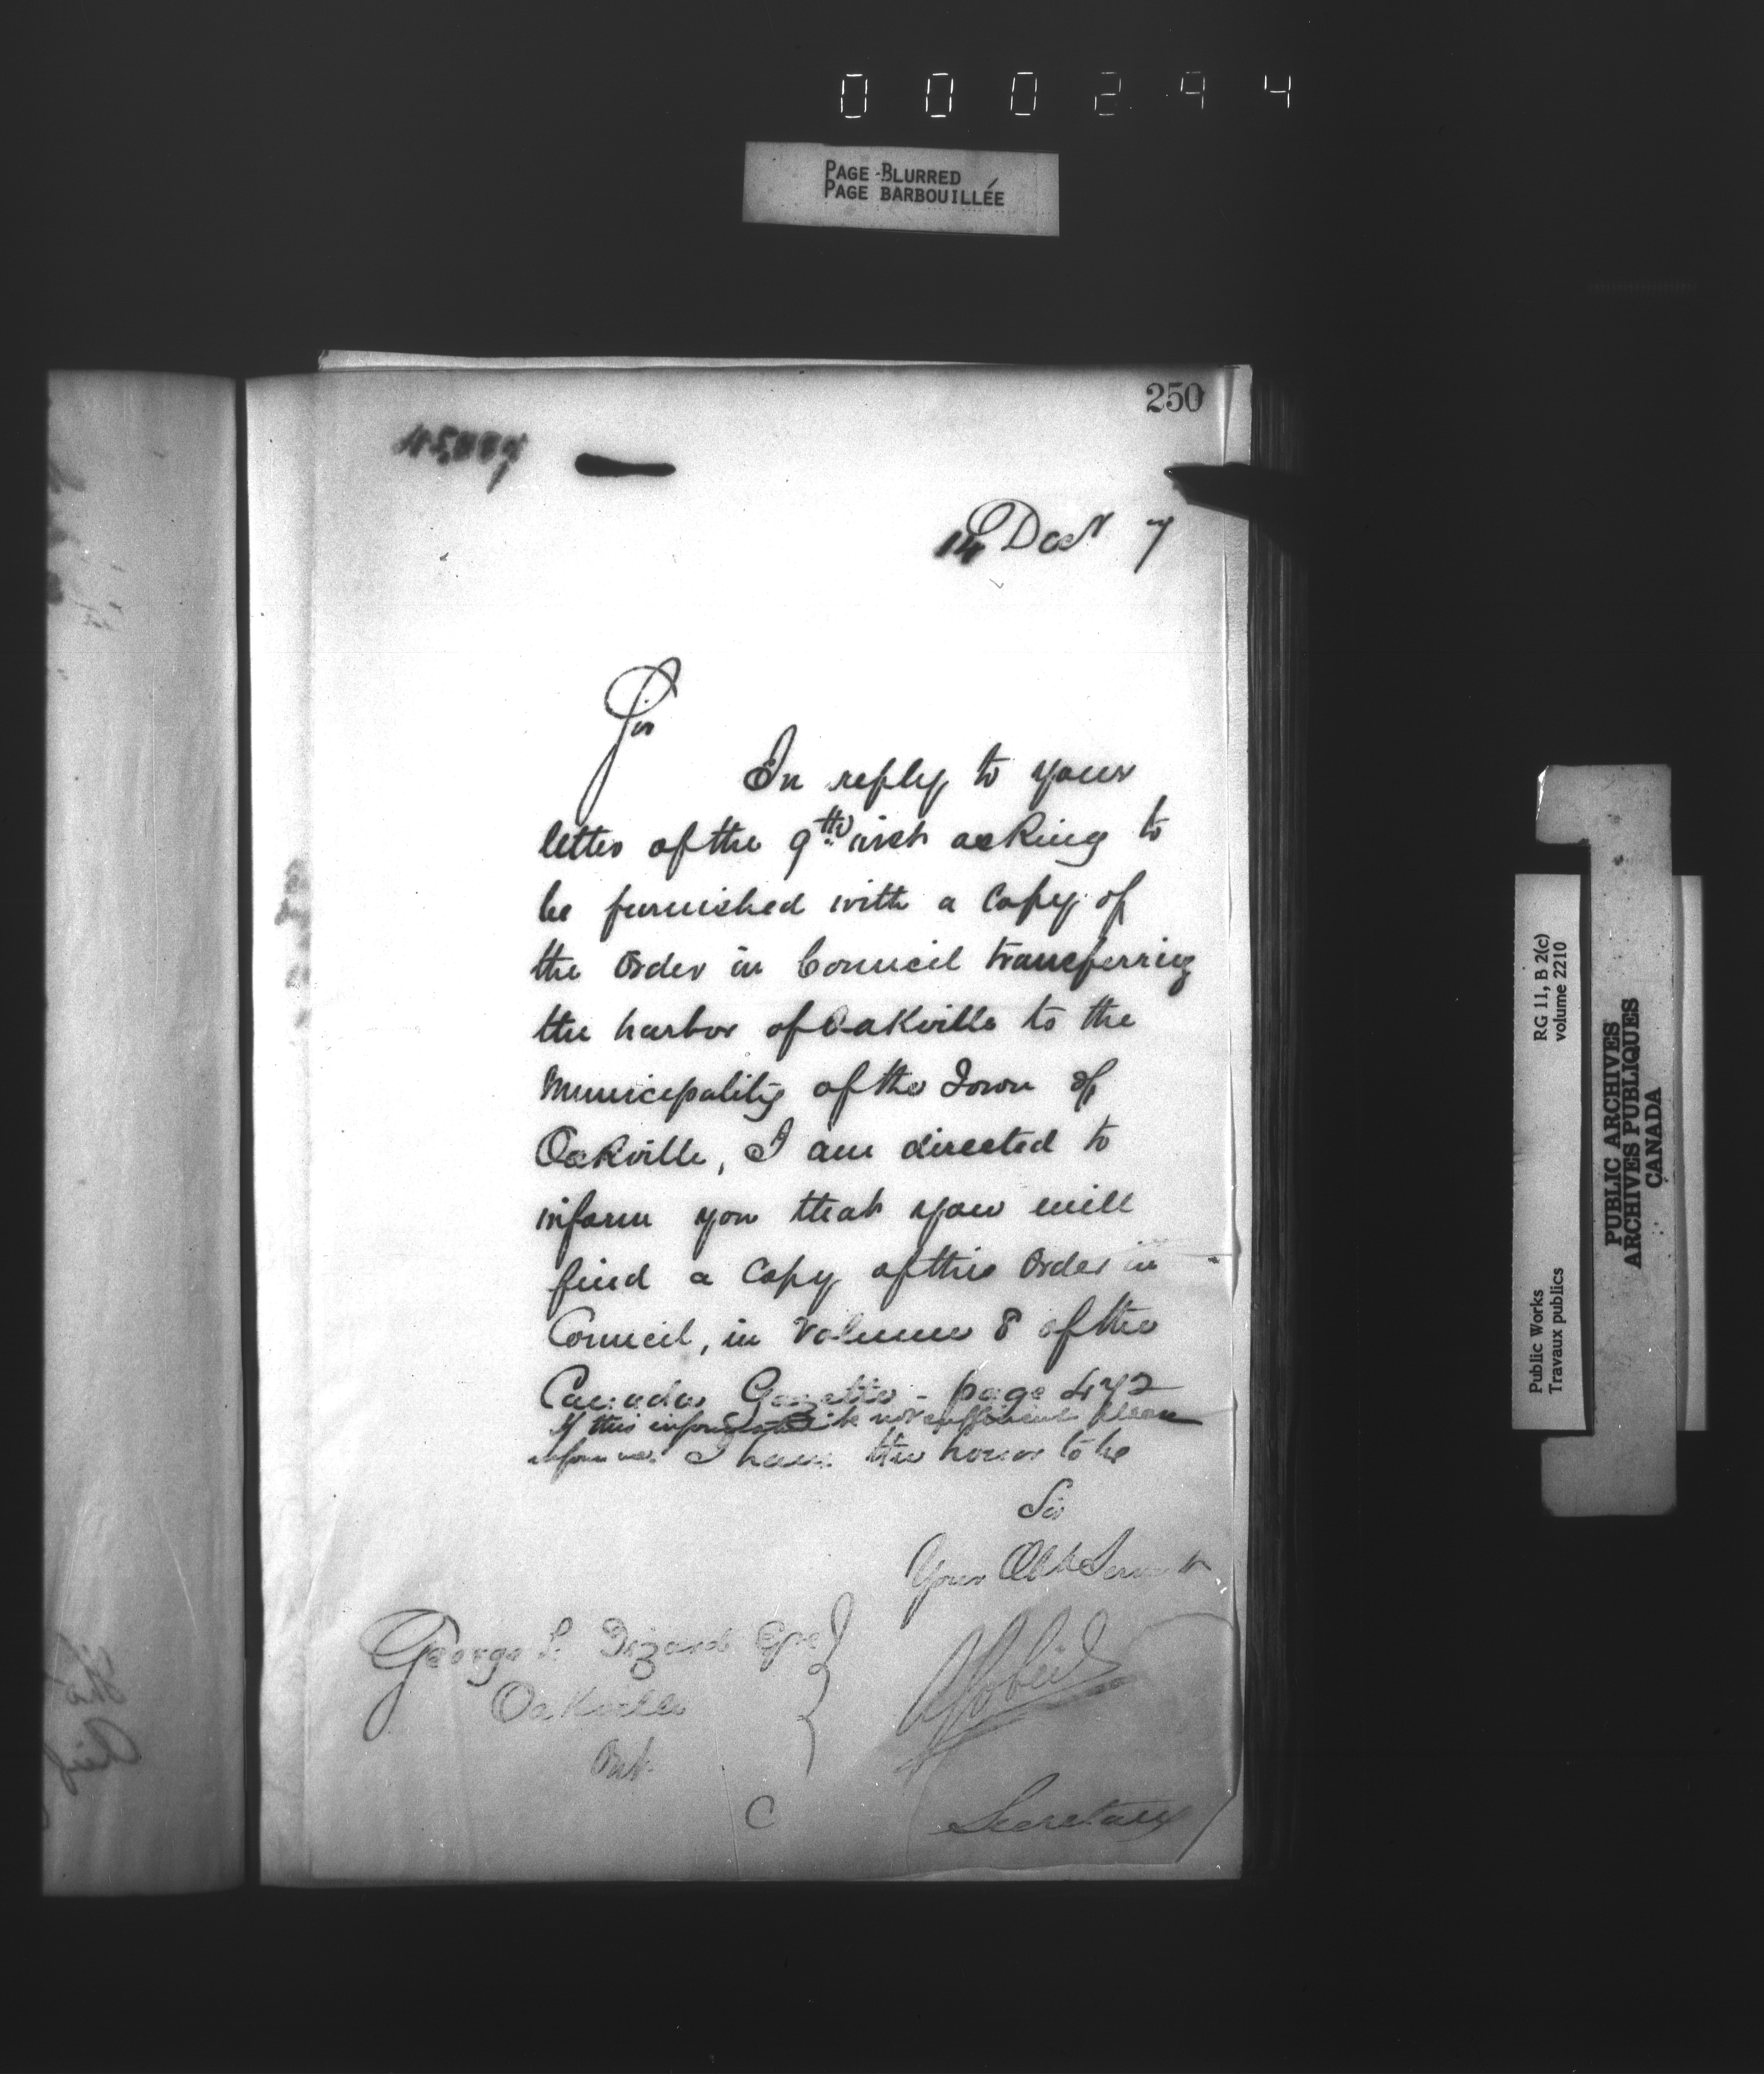 000294
PAGE BLURRED
PAGE BARBOUILLÉE
250
14 Decr 7
Sir
In reply to your
letter of the 9th inst asking to
be furnished with a copy of
the Order in Council transferring
the harbor of Oakville to the
Municipality of the Town of
Oakville, I am directed to
inform you that you will
find a copy of this Order in
Council, in Volume 8 of the
Canada Gazette - page 472
If this information be not sufficient please
inform me. I have the honor to be
Sir
Your Obt Servt
George L. Tizard Esq
Oakville
Ont.
Secretary
C
Public Works
Travaux publics
RG 11, B 2(c)
volume 2210
PUBLIC ARCHIVES
ARCHIVES PUBLIQUES
CANADA